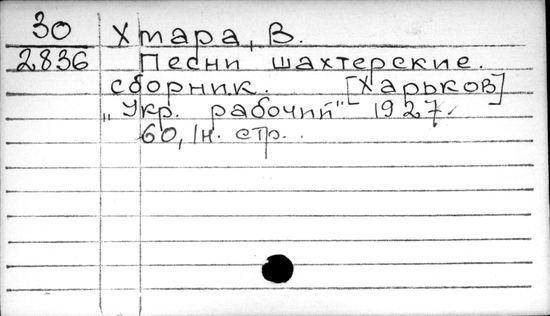 30 Хмара, В.
2836 Песни шахтерские.
сборник. [Харьков]
"Укр. рабочий" 1927.
60, 1н. стр.